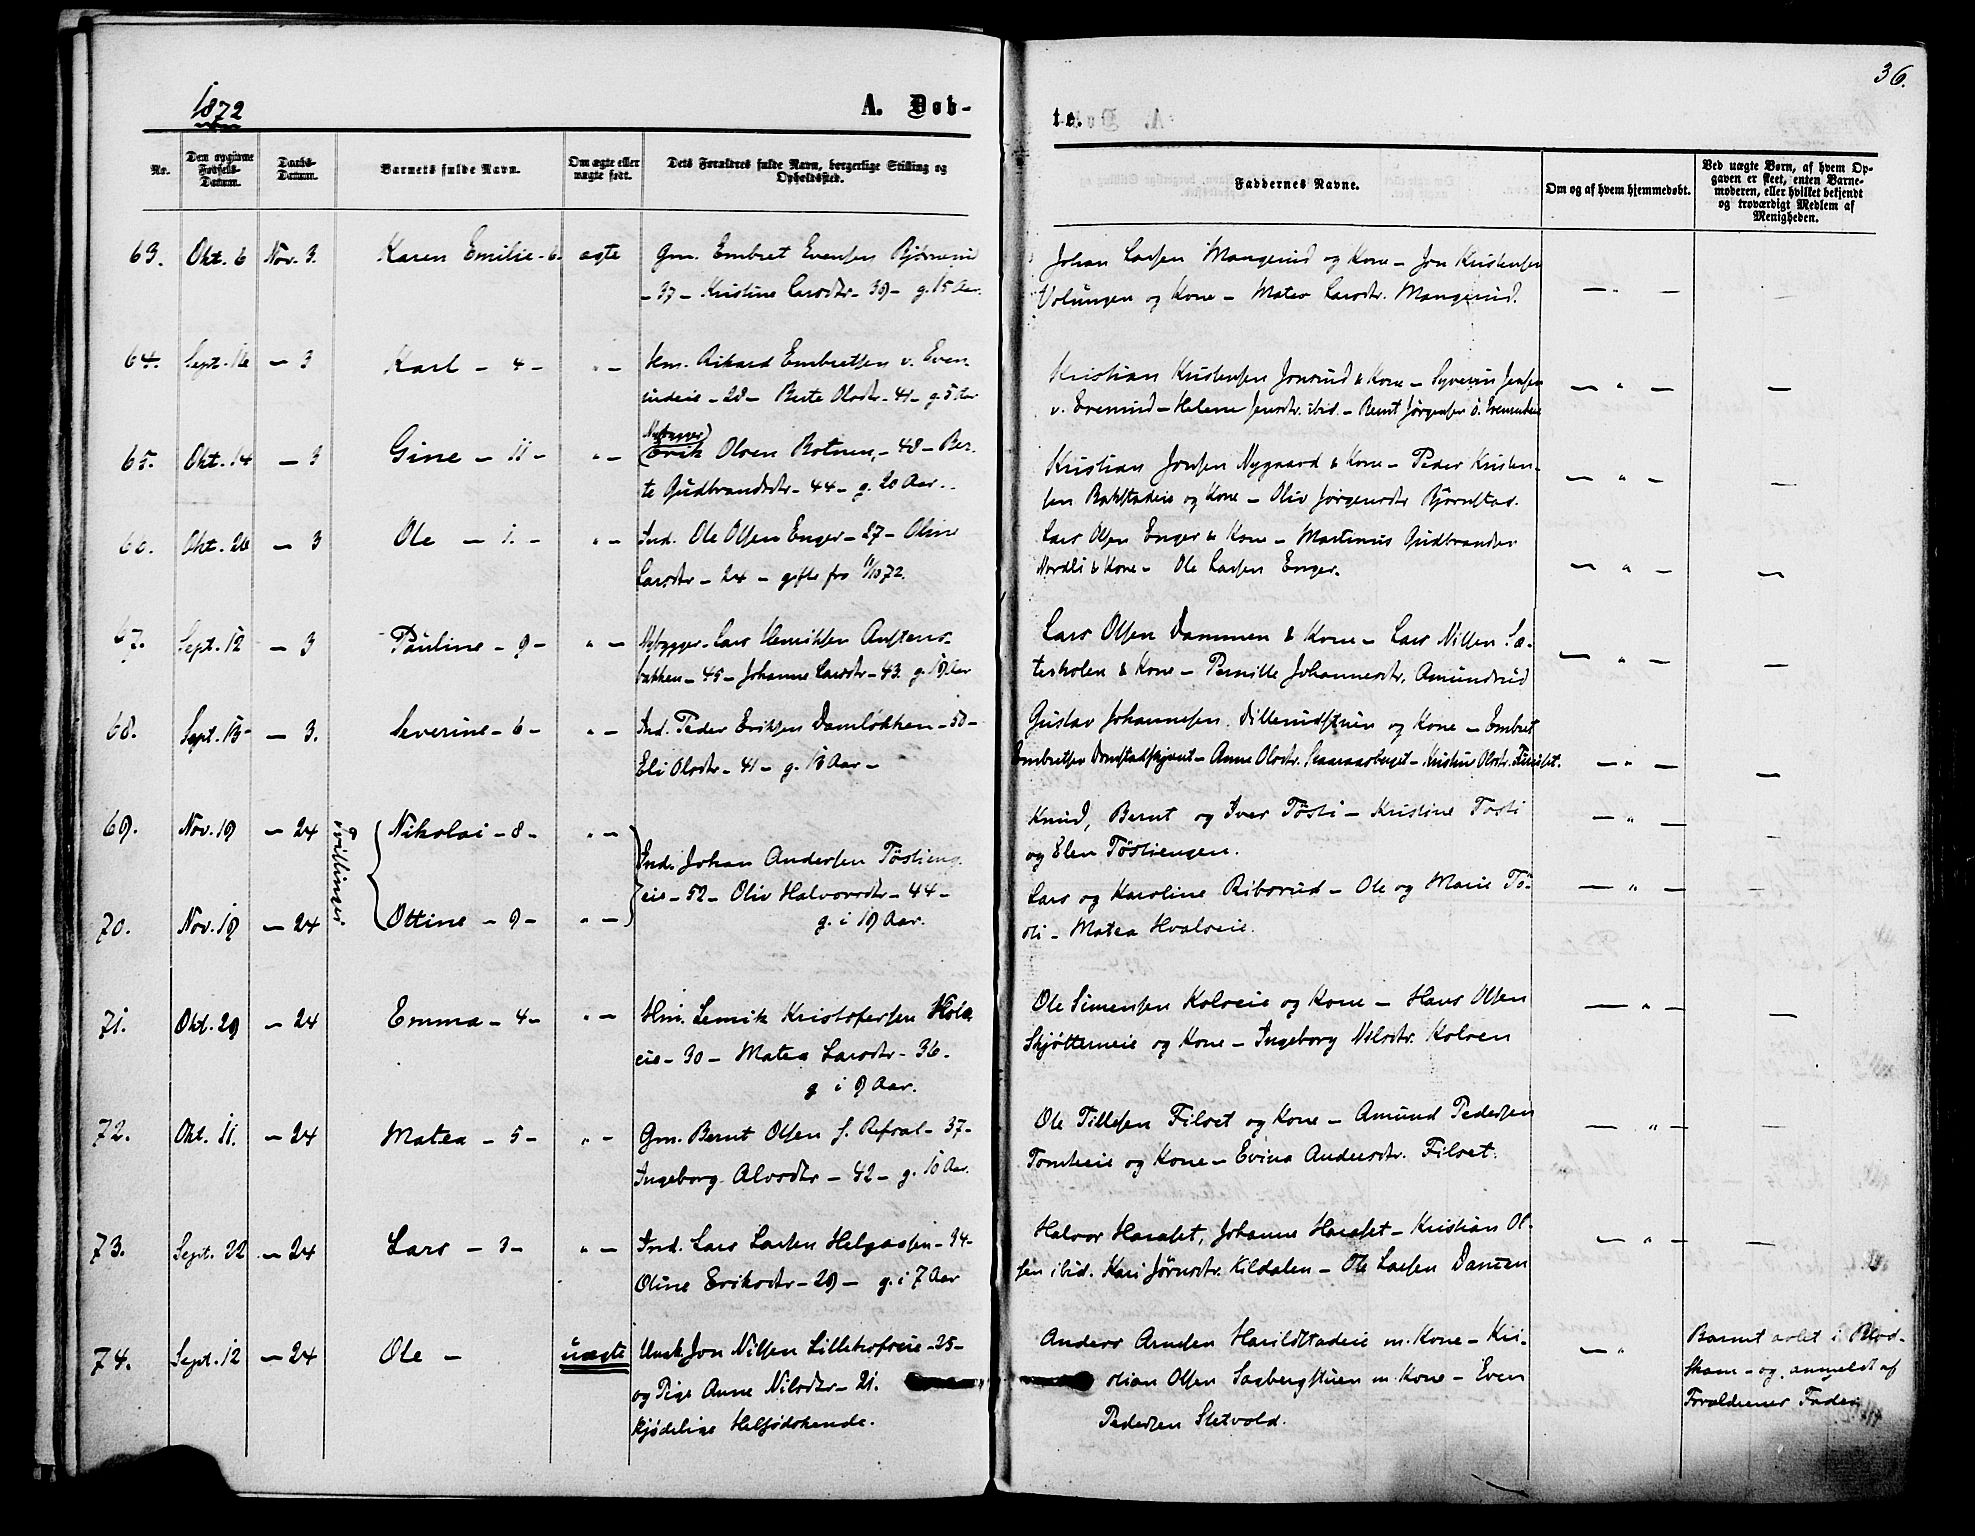 1872
36.
A. Døb-
te.
No.
Den opgivne Fødsels-Datum.
Daabs-Datum.
Barnets fulde Navn.
Om ægte eller uægte født.
Dets Forældres fulde Navn, borgerlige Stilling og Opholdssted.
Faddernes Navne.
Om og af hvem hjemmedøbt.
Ved uægte Børn, af hvem Op-
gaven er skeet, enten Barne-
moderen, eller hvilket bekjendt
og troværdigt Medlem af
Menigheden.
63. Okt. 6 Nov. 3. Karen Emilie - 6. ægte Gm. Embret Evensen Bjørnerud
- 37 - Kristine Larsdtr - 39 - g. 15 Aar.
Johan Larsen Mangerud og Kone - Jon Kristensen
Volungen og Kone - Matea Larsdtr. Mangerud.
64. Sept. 16 - 3 Karl - 4 - " - Hm. Rikard Embretsen v. Even
rudeie - 28 - Berte Olsdtr - 41 - g. 5 Aar
Kristian Kristensen Jonsrud & Kone - Syverin Jensen
v. Evenrud - Helene Jensdtr. ibid. - Bernt Jørgensen ö. Evenrudeie
65. Okt. 14 - 3 Gine - 11 - " - Nybygger Erik Olsen Botnen, - 48 - Ber-
te Gudbrandsdtr - 44 - g. 20 Aar.
Kristian Jonsen Nygaard & Kone - Peder Kristen-
sen Bakstadeie og Kone - Oliv Jørgensdtr Bjørnstad.
66. Okt. 26 - 3 Ole - 1. - " - Ind. Ole Olsen Enger - 27 - Oline
Larsdtr - 24 - gifte fra 11/10 72.
Lars Olsen Enger & Kone - Martinus Gudbrandsen
Nordli & Kone - Ole Larsen Enger.
67. Sept. 12 - 3 Pauline - 9 - " - Nybygger Lars Henriksen Austens-
bakken - 45 - Johanne Larsdtr - 43. g. 19 Aar
Lars Olsen Dammen & Kone - Lars Nilsen Sæ-
terholen & Kone - Pernille Johannesdtr. Amundrud
68. Sept. 15 - 3. Severine - 6 - " - Ind. Peder Eriksen Damløkken - 50 -
Eli Olsdtr - 41 - g. 18 Aar -
Gustav Johannesen Dillerudstuen og Kone - Embret
Embretsen - Anne Olsdtr. Skaaraasberget - Kristine Olsdtr.
69. Nov. 19 - 24 Nikolai - 8 - " -
Tvillinger
Ind. Johan Andersen Töstieng
eie - 52 - Oliv Halvorsdtr - 44 -
g. i 19 Aar.
Knud, Bernt og Iver Tösti - Kristine Tosti
og Elen Töstiengen.
70. Nov. 19 - 24 Ottine - 9 - " -
Lars og Karoline Riborud - Ole og Marie Tö-
sti - Matea Hvalseie.
71. Okt. 29 - 24 Emma - 4 - " - Hm. Lemik Kristofersen Kols
eie - 30 - Matea Larsdtr - 36.
g i 9 Aar.
Ole Simensen Kolseie og Kone - Hans Olsen
Skjötterneie og Kone - Ingeborg Nilsdtr. Kolsen
72. Okt. 11. - 24 Matea - 5 - " - Gm. Bernt Olsen s. Refsal - 37 -
Ingeborg Alvsdtr - 42 - g. 10 Aar.
Ole Tillesen Filset og Kone - Amund Pedersen
Tomteeie og Kone - Evina Andersdtr. Filset.
73. Sept. 22 - 24 Lars - 3 - " - Ind. Lars Larsen Helgassen - 34 -
Oline Eriksdtr - 29 - g. i 7 Aar
Halvor Haraset, Johanne Haraset - Kristian Ol-
sen ibid. Kari Jörnsdtr. Kildalen - Ole Larsen Dansen
74. Sept. 12 - 24 Ole - uægte Unck. Jon Nilsen Lillehofseie - 25 -
og Pige Anne Nilsdtr - 21.
kjødelige Helsødskende.
Anders Arnesen Harildstadeie m. Kone - Kri-
stian Olsen Sagbergstuen m. Kone - Even
Pedersen Sletvold.
Barnet avlet i Blod-
skam - og anmeldt af
Forældrenes Fader